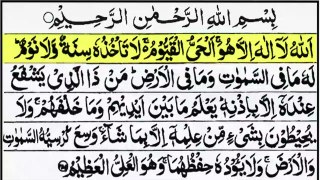 بِسْمِ اللهِ الرَّحْمٰنِ الرَّحِيْمِ
اَللهُ لَآ اِلٰهَ اِلَّا هُوَ ۚ اَلْحَیُّ الْقَیُّوْمُ ۚ لَا تَاْخُذُهٗ سِنَةٌ وَّلَا نَوْمٌ ؕ
لَهٗ مَا فِی السَّمٰوٰتِ وَمَا فِی الْاَرْضِ ؕ مَنْ ذَا الَّذِیْ یَشْفَعُ
عِنْدَهٗۤ اِلَّا بِاِذْنِهٖ ؕ یَعْلَمُ مَا بَیْنَ اَیْدِیْهِمْ وَمَا خَلْفَهُمْ ۚ وَلَا
یُحِیْطُوْنَ بِشَیْءٍ مِّنْ عِلْمِهٖۤ اِلَّا بِمَا شَآءَ ۚ وَسِعَ كُرْسِیُّهُ السَّمٰوٰتِ
وَالْاَرْضَ ۚ وَلَا یَـُٔوْدُهٗ حِفْظُهُمَا ۚ وَهُوَ الْعَلِیُّ الْعَظِیْمُ